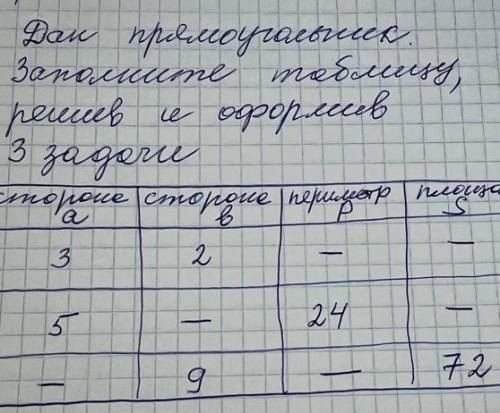 Дан прямоугольник.
Заполните таблицу,
решив и оформив
3 задачи
сторона а сторона в периметр P площа S
3 2 — —
5 — 24 —
— 9 — 72